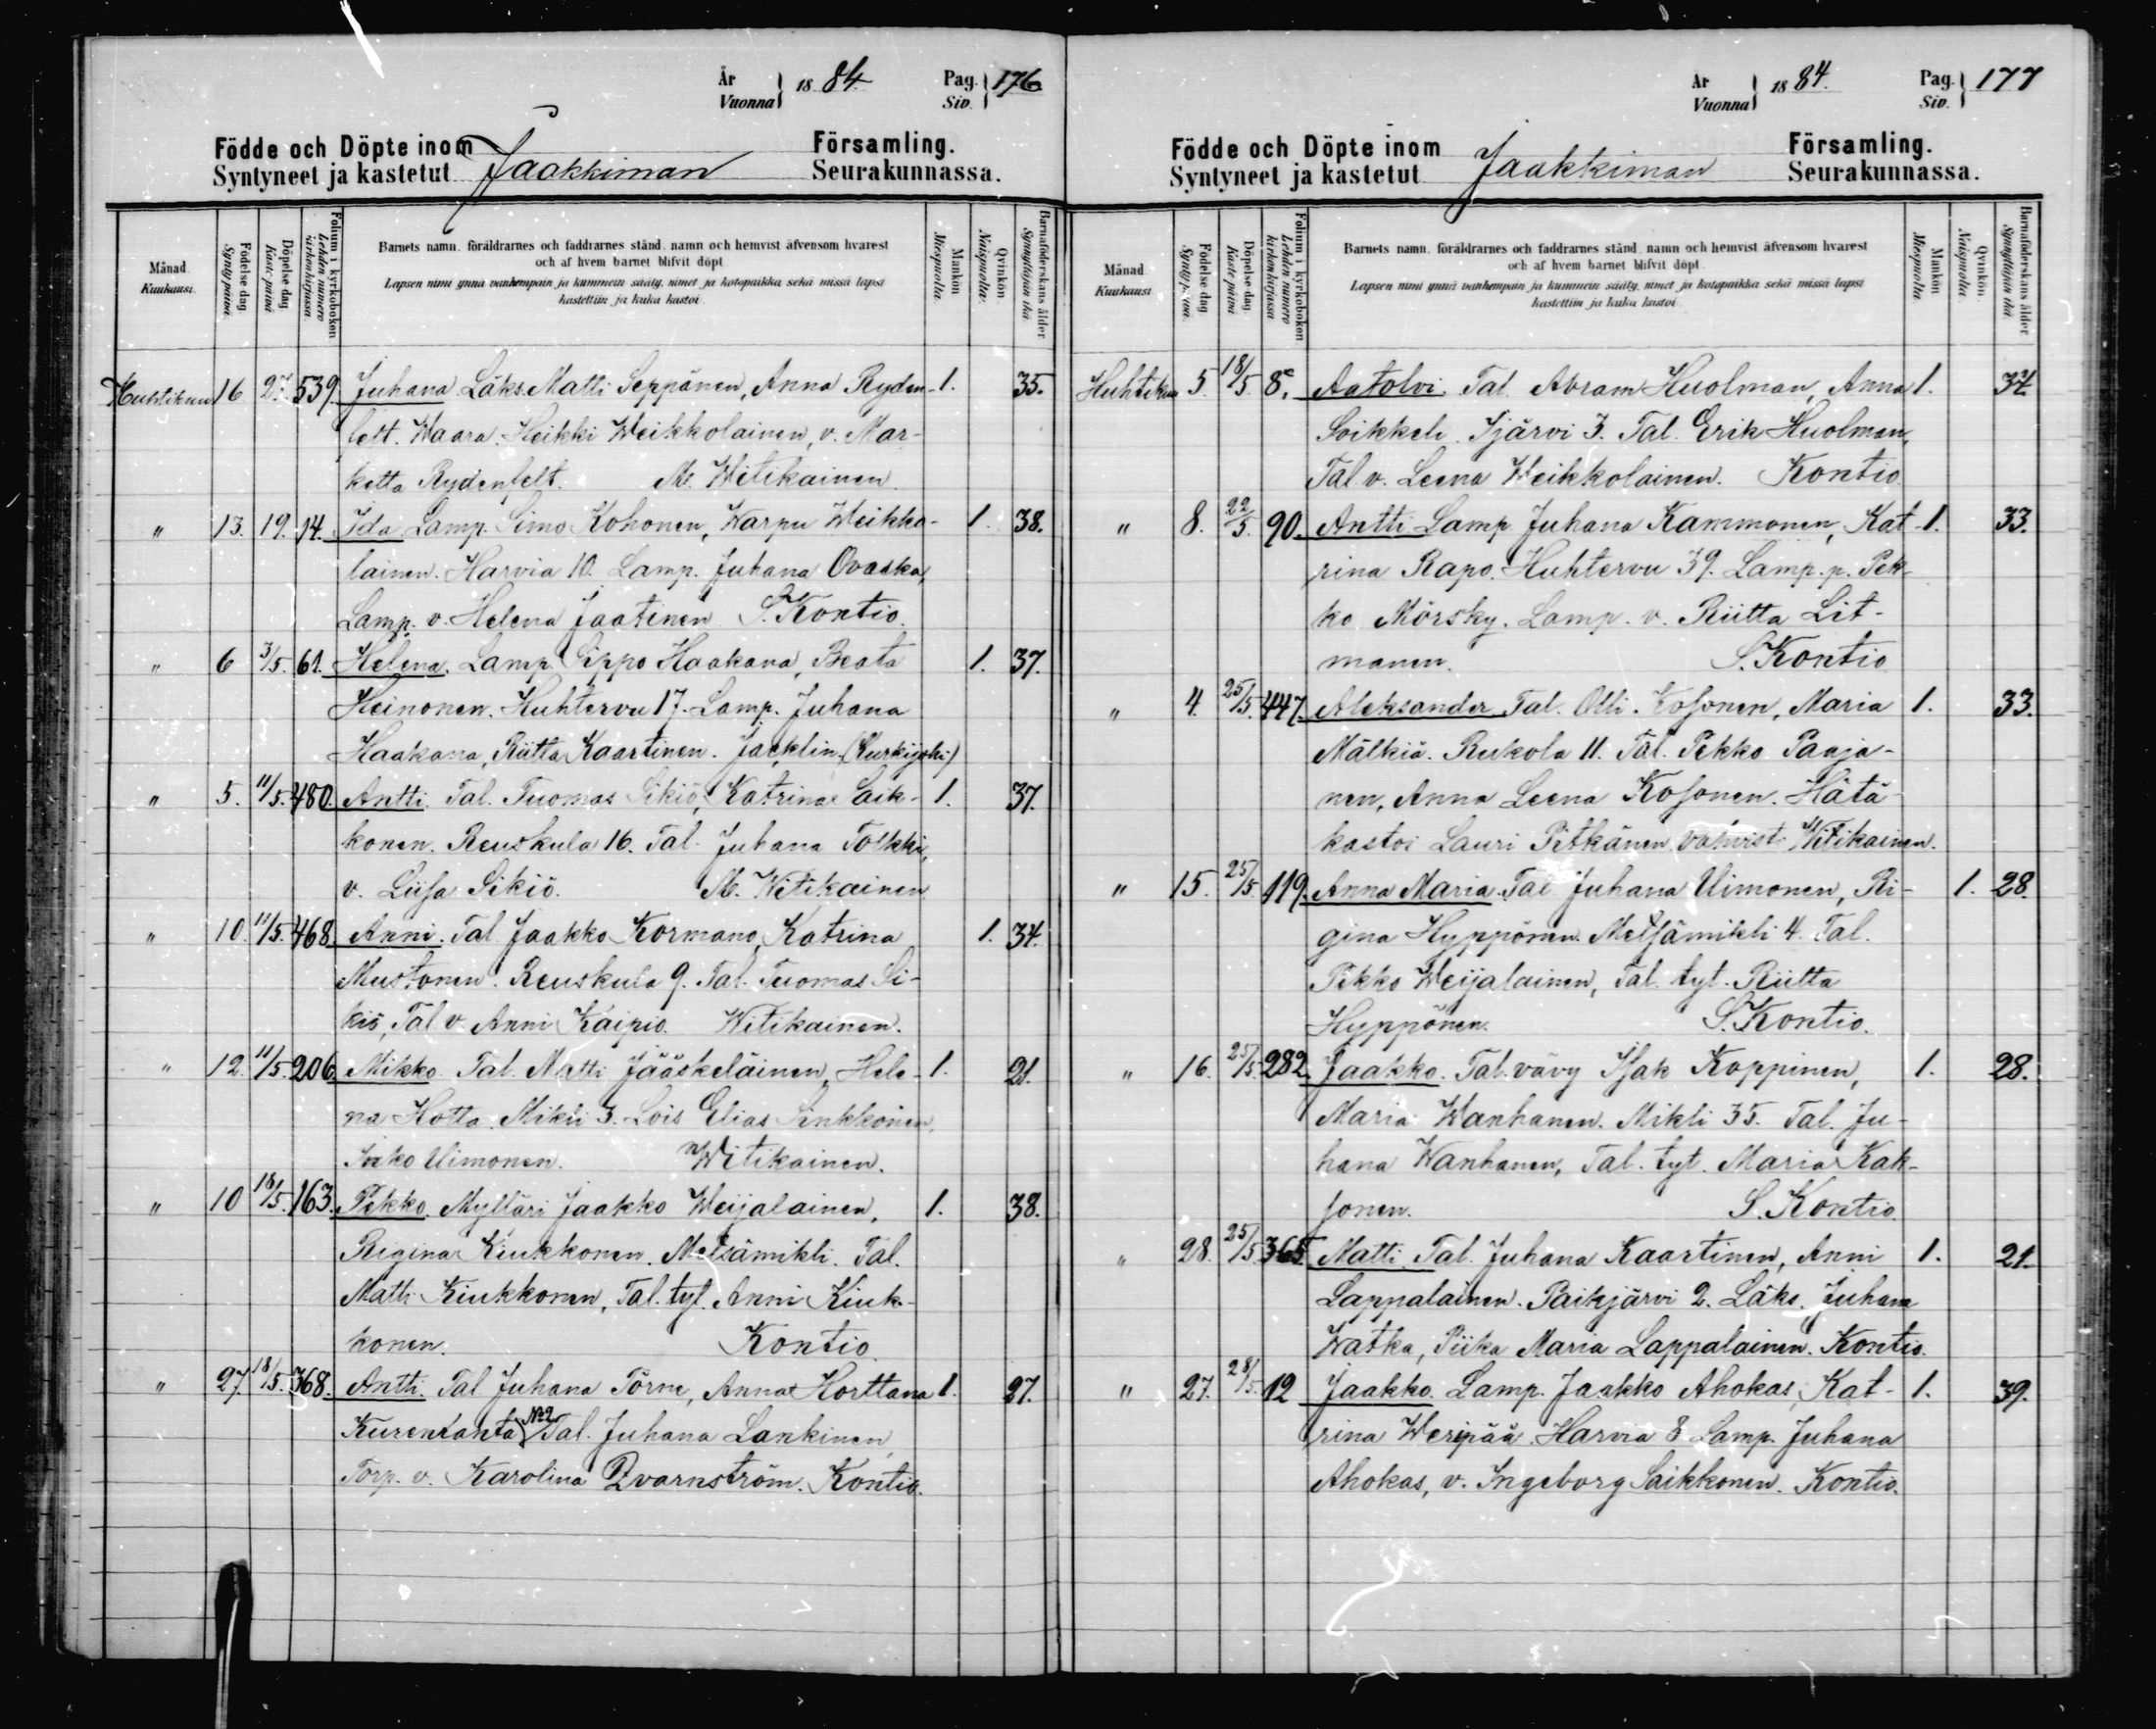 År
Vuonna
1884.
Pag.
Siv.
176
Födde och Döpte inom
Syntyneet ja kastetut
Jaakkiman
Församling.
Seurakunnassa.
Månad
Kuukausi
Födelse dag
Synty päivä.
Döpelse dag
Kaste-päivä
Folium i kyrkoboken
Lehden numero kirkonkirjassa
Barnets namn, föräldrarnes och faddrarnes stånd, namn och hemvist äfvensom hvarest
och af hvem barnet blifvit döpt
Lapsen nimi ynnä vanhempain ja kummein sääty, nimet ja kotopaikka sekä missä lapsi
kastettiin ja kuka kastoi
Mankön
Miespuolia.
Qvinkön
Naispuolia.
Barnaföderskans ålder
Synnyttäjän ikä
Huhtikuu 16 27. 539. Juhana Läks. Matti Seppänen, Anna Ryden- 1. 35.
felt. Waara. Heikki Weikkolainen, v. Mar-
ketta Rydenfelt. M. Witikainen.
" 13. 19. 14. Ida Lamp. Simo Kohonen, Warpu Weikko- 1. 38.
lainen. Harvia 10. Lamp. Juhana Ovaska,
Lamp. v. Helena Jaatinen S. Kontio.
" 6 3/5. 61. Helena. Lamp. Sippo Haakana, Beata 1. 37.
Heinonen. Huhtervu 17. Lamp. Juhana
Haakana, Riitta Kaartinen. Jacklin (Kurkijoki)
" 5. 11/5. 480. Antti. Tal. Tuomas Sikiö, Katrina Saik- 1. 37.
konen. Reuskula 16. Tal. Juhana Tolkki,
v. Liisa Sikiö. M. Witikainen
" 10. 11/5. 468. Anni. Tal. Jaakko Kormano, Katrina 1. 34.
Mustonen. Reuskula 9. Tal. Tuomas Si-
kiö, Tal. v. Anni Kaipio. Witikainen.
" 12. 11/5. 206. Mikko. Tal. Matti Jääskeläinen, Hele- 1. 21.
na Hotta. Mikli 3. Lois Elias Sinkkoinen,
Inko Uimonen. Witikainen.
" 10 18/5. 163. Pekko. Mylläri Jaakko Weijalainen, 1. 38.
Regina Kiukkonen. Metsämikli. Tal.
Matti Kiukkonen, Tal. tyt. Anni Kiuk-
konen. Kontio.
" 27. 18/5. 368. Antti. Tal Juhana Törne, Anna Horttana 1. 27.
Kurenranta No 2. Tal. Juhana Lankinen,
Torp. v. Karolina Qvarnström. Kontio.
År
Vuonna
1884.
Pag.
Siv.
177
Födde och Döpte inom
Syntyneet ja kastetut
Jaakkiman
Församling.
Seurakunnassa.
Månad
Kuukausi
Födelse dag
Synty päivä.
Döpelse dag
Kaste päivä
Folium i kyrkoboken
Lehden numero kirkonkirjassa
Barnets namn, föräldrarnes och faddrarnes stånd, namn och hemvist äfvensom hvarest
och af hvem barnet blifvit döpt
Lapsen nimi ynnä vanhempain ja kummein sääty, nimet ja kotopaikka sekä missä lapsi
kastettiin ja kuka kastoi
Mankön
Miespuolia.
Qvinkön.
Naispuolia.
Barnaföderskans ålder
Synnyttäjän ikä.
Huhtikuu 5. 18/5 8. Aatolvi. Tal. Abram Huolman, Anna 1. 34.
Soikkeli. Ijärvi 3. Tal. Erik Huolman,
Tal v. Leena Weikkolainen. Kontio
" 8. 22/5. 90. Antti Lamp Juhana Kammonen, Kat- 1. 33.
rina Rapo. Huhtervu 39. Lamp. p. Pek-
ko Mörsky. Lamp. v. Riitta Lit-
manen. S. Kontio
" 4. 25/5. 447. Aleksander Tal. Olli. Kosonen, Maria 1. 33.
Mälkiä. Rukola 11. Tal. Pekko Paaja-
nen, Anna Leena Kosonen. Hätä-
kastoi Lauri Pitkänen, vahvisti Witikainen.
" 15. 25/5. 119. Anna Maria. Tal. Juhana Uimonen, Ri- 1. 28.
gina Hyppönen. Metsämikli 4. Tal.
Pekko Weijalainen, Tal. tyt. Riitta
Hyppönen. S. Kontio.
" 16. 25/5. 282. Jaakko. Tal. vävy Isak Koppinen, 1. 28.
Maria Wanhanen. Mikli 35. Tal. Ju-
hana Wanhanen, Tal. tyt. Maria Kak-
sonen. S. Kontio.
" 28. 25/5. 365. Matti. Tal. Juhana Kaartinen, Anni 1. 21.
Lappalainen. Paikjärvi 2. Läks. Juhana
Watka, Piika Maria Lappalainen. Kontio.
" 27. 28/5. 12 Jaakko. Lamp. Jaakko Ahokas, Kat- 1. 39.
rina Weripää. Harvia 8 Lamp. Juhana
Ahokas, v. Ingeborg Saikkonen. Kontio.